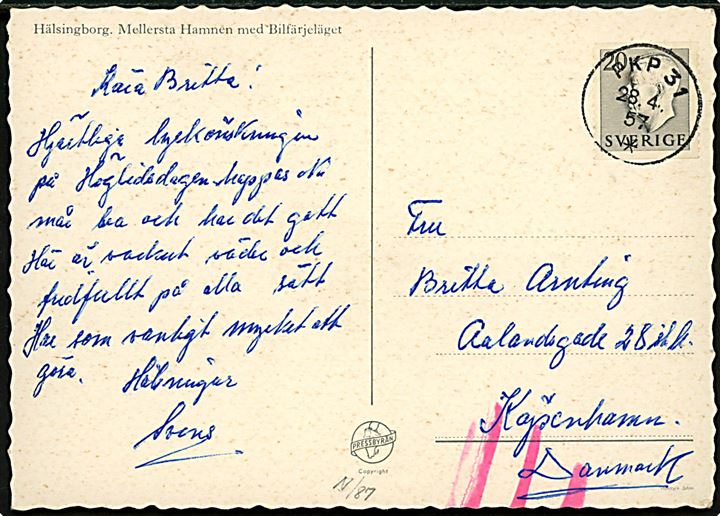 Hälsingborg. Mellersta Hamnen med Bilfärjeläget
Kära Britta!
Hjärtliga lyckönskningar
på Högtidsdagen hoppas Ni
mår bra och har det gott
Här är vackert väder och
fridfullt på alla sätt
Har som vanligt mycket att
göra. Hälsningar
Svens
20
SVERIGE
PKP 31
28.4.
57
Fru
Britta Arnting
Aalandsgade 28
Köpenhamn.
Danmark
PRESSBYRÅN
Copyright
N/87